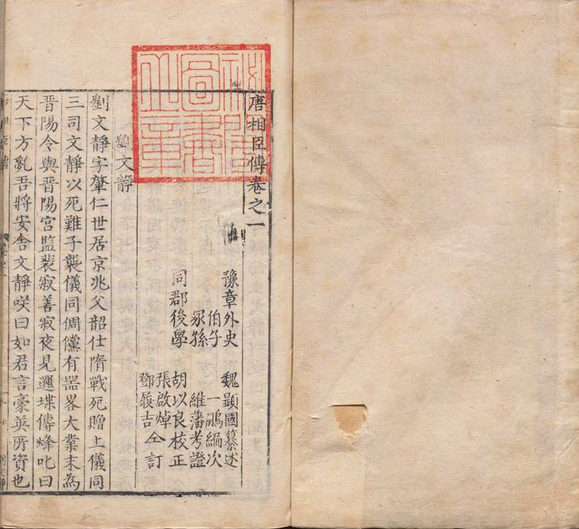 唐相臣傳卷之一
豫章外史 魏顯國纂述
伯子 一鵬編次
冢孫 維藩考證
同郡後學 胡以良校正
張啟焯
鄧履吉仝訂
劉文靜
劉文靜字肇仁世居京兆父韶仕隋戰死贈上儀同
三司文靜以死難子襲儀同倜儻有器畧大業末為
晋陽令與晋陽宮監裴寂善寂夜見邏堞傳烽叱曰
天下方亂吾將安舍文靜咲曰如君言豪英所資也